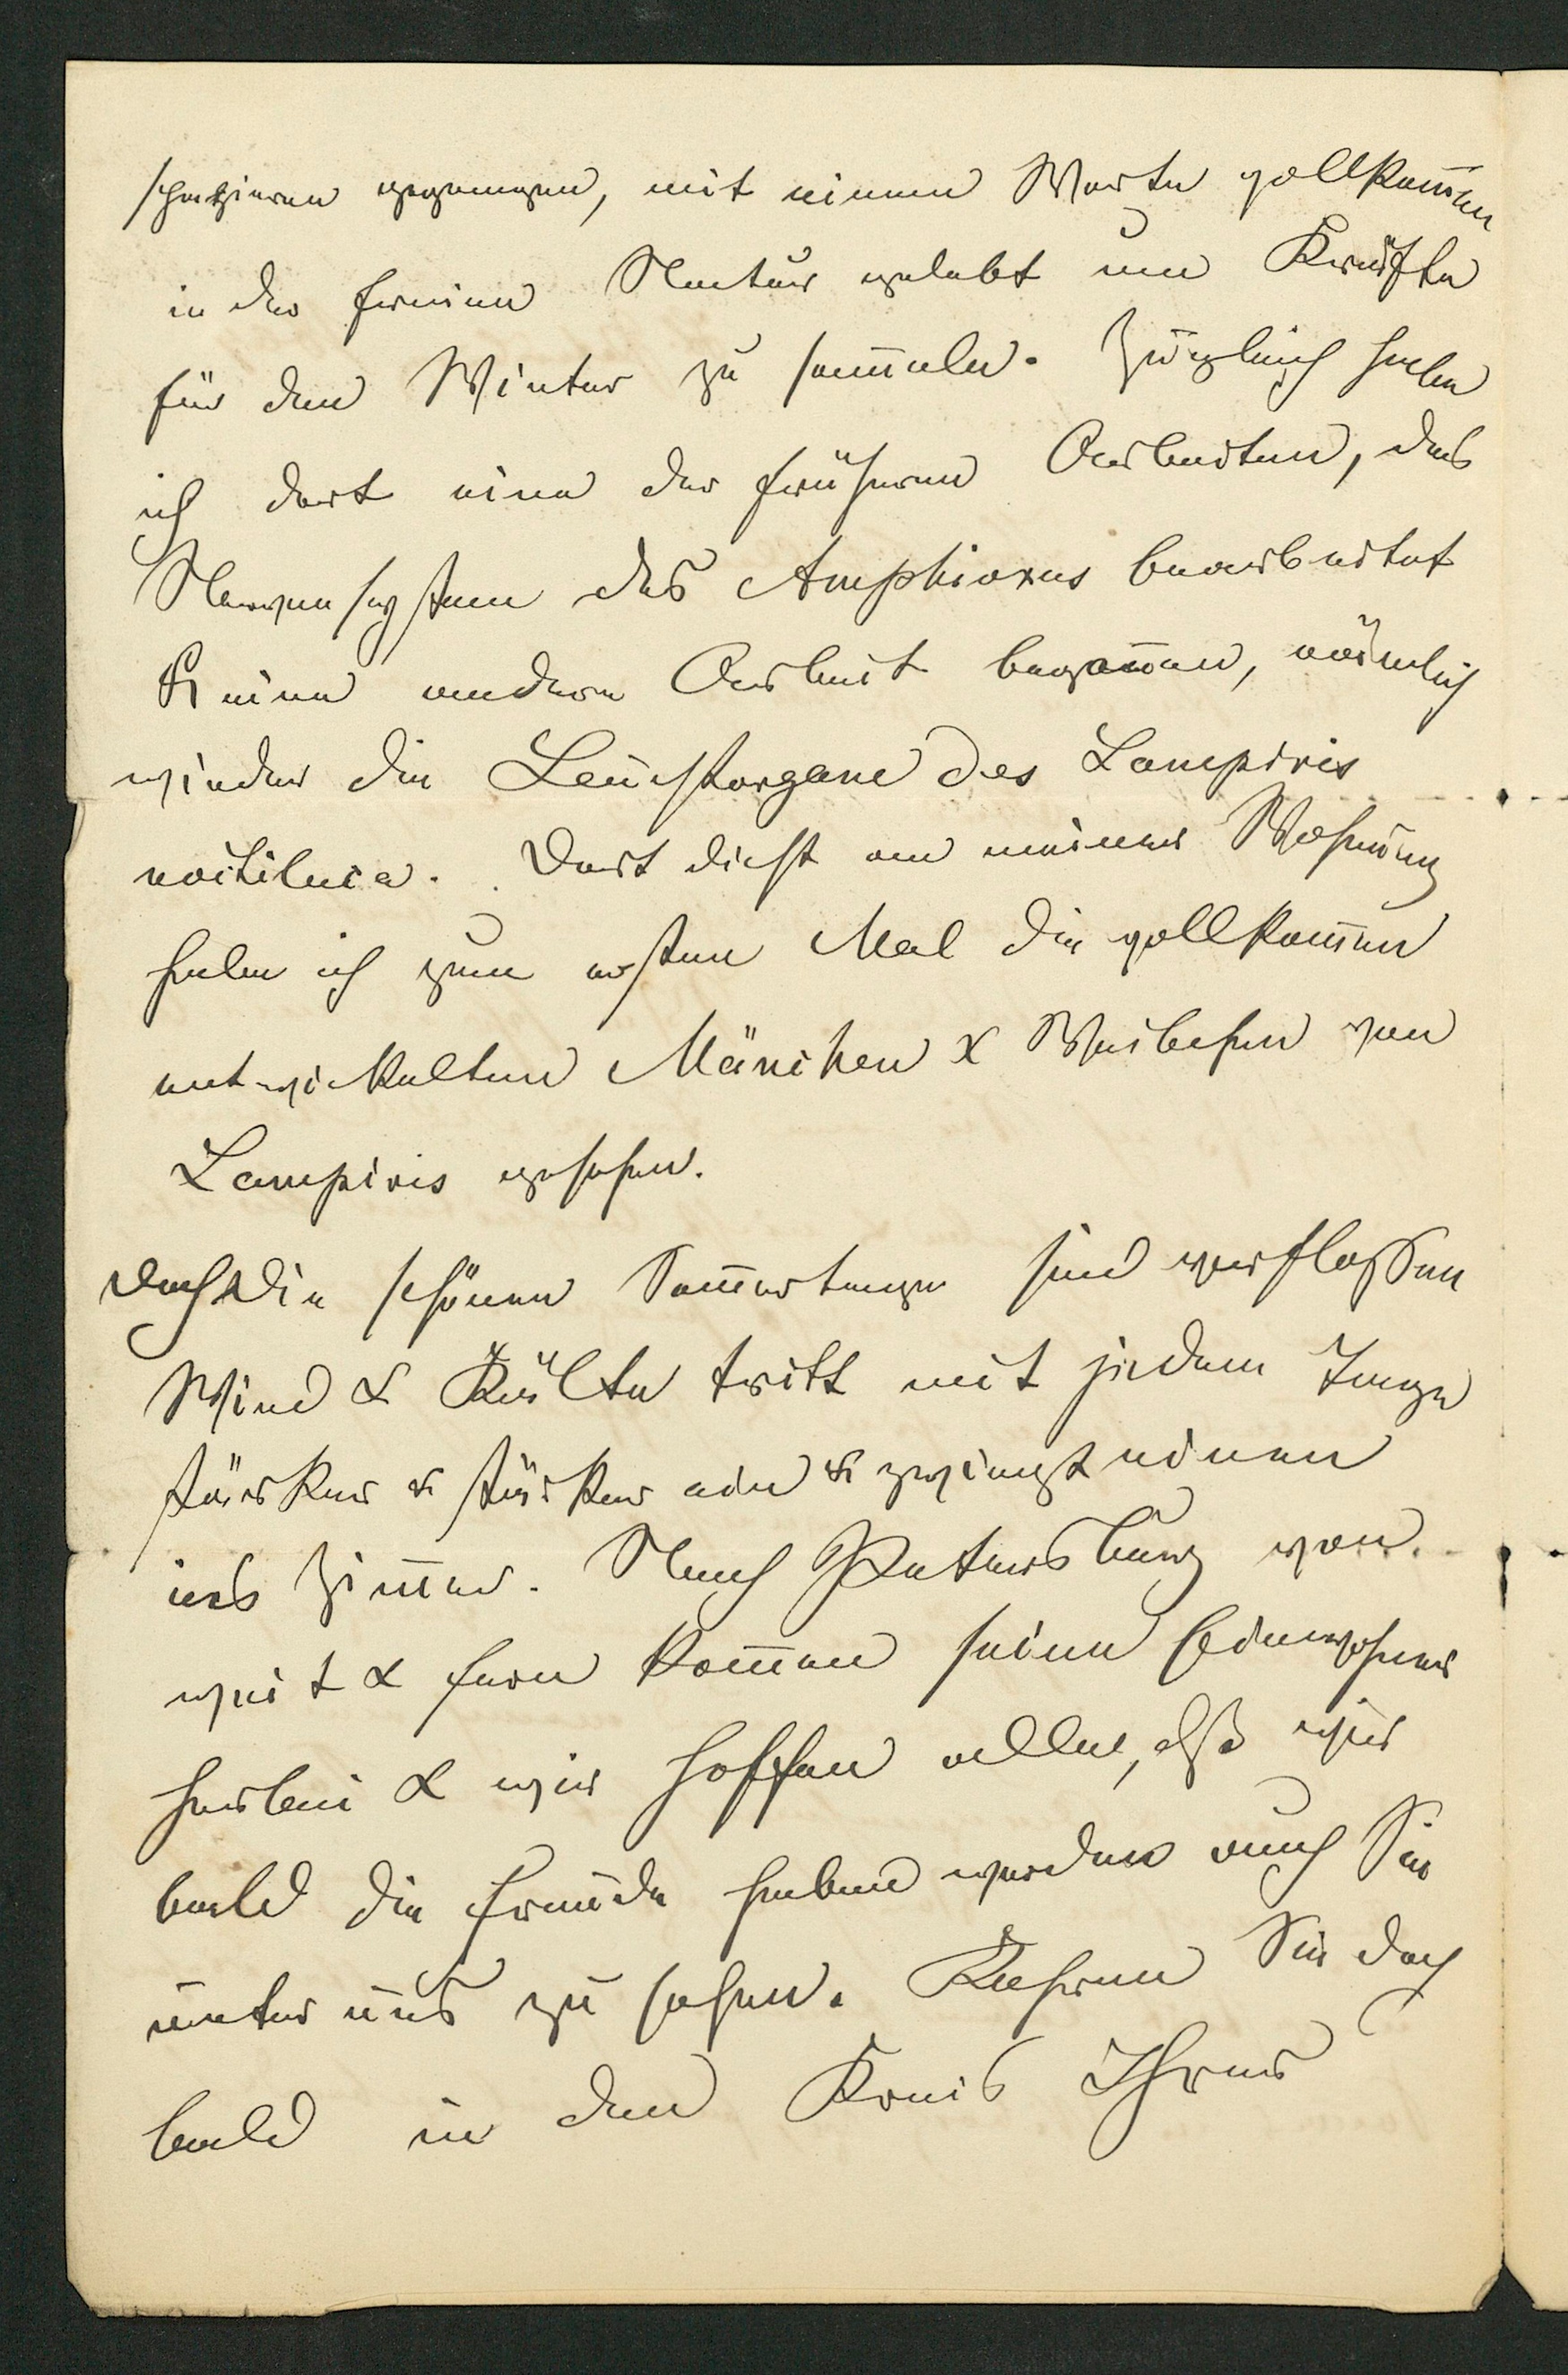 spazieren gegangen, mit einem Worte vollkom̅en
in der freien Natur gelebt um Kräfte
für den Winter zu sam̅eln. Zugleich habe
ich dort eine der früheren Arbeiten, das
Nervensystem des Amphioxus bearbeitet
& eine andere Arbeit begon̅en, nämlich
wieder die Leuchtorgane des Lampiris
noctiluca. Dort dicht an meiner Wohnung
habe ich zum ersten Mal die vollkom̅en
entwickelten Mänchen & Weibchen von
Lampiris gesehen.
Doch die schönen Som̅ertage sind verflossen
Wind & Kälte tritt mit jedem Tage
stärker & stärker ein & zwingt einen
ins Zim̅er. Nach Petersburg von
weit & fern kom̅en seine Einwohner
herbei & wir hoffen alle, dß wir
bald die Freude haben werden auch Sie
unter uns zu sehen. Kehren Sie doch
bald in den Kreis Ihrer